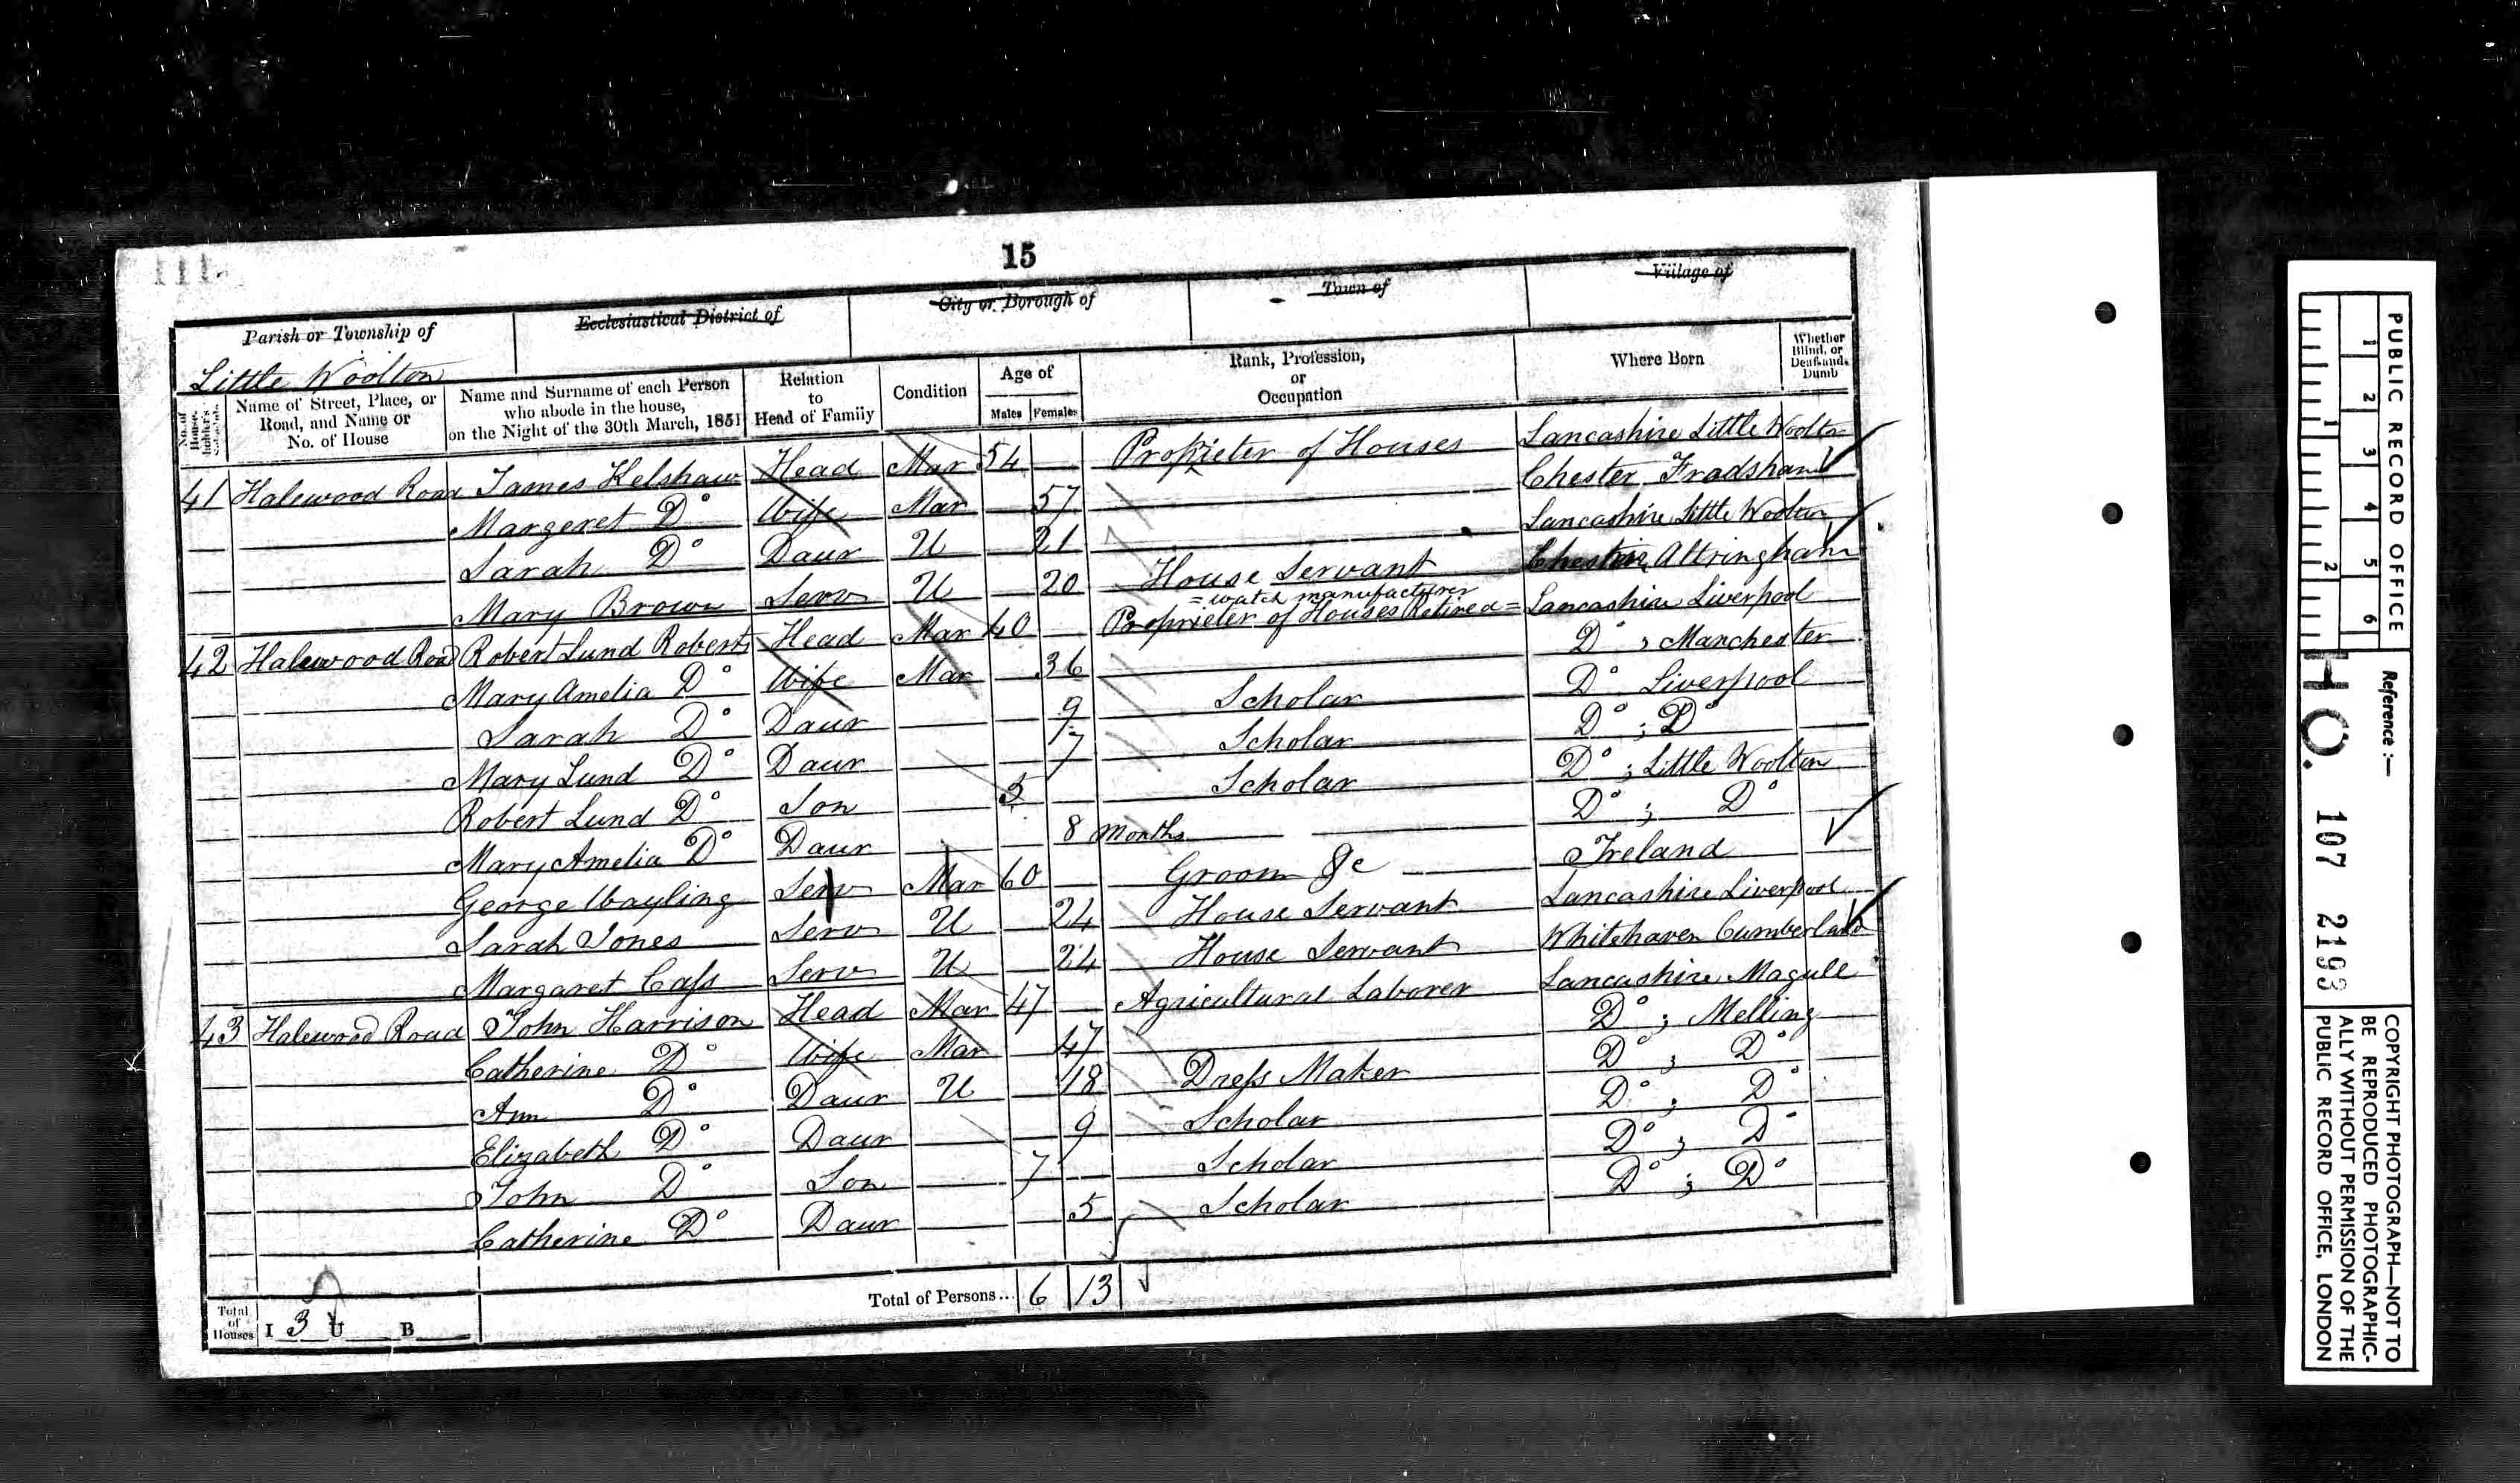 15
Parish or Township of
Ecclesiastical District of
City or Borough of
Town of
Village of
Little Woolton
No. of House-holder's Schedule
Name of Street, Place, or Road, and Name or No. of House
Name and Surname of each Person who abode in the house, on the Night of the 30th March, 1851
Relation to Head of Family
Condition
Age of
Males Females
Rank, Profession, or Occupation
Where Born
Whether Blind, or Deaf-and-Dumb
41 Halewood Road James Kelshaw Head Mar 54 Proprieter of Houses Lancashire Little Woolton
Margeret Do Wife Mar 57 Chester Fradsham
Sarah Do Daur U 21 Lancashire Little Woolton
Mary Brown Serv U 20 House Servant Cheshire Altringham
42 Halewood Road Robert Lund Roberts Head Mar 40 Proprieter of Houses Retired = = watch manufacturer Lancashire Liverpool
Mary Amelia Do Wife Mar 36 Do , Manchester
Sarah Do Daur 9 Scholar Do Liverpool
Mary Lund Do Daur 7 Scholar Do ; Do
Robert Lund Do Son 5 Scholar Do ; Little Woolton
Mary Amelia Do Daur 8 Months Do ; Do
George Wayling Serv Mar 60 Groom &c Ireland
Sarah Jones Serv U 24 House Servant Lancashire Liverpool
Margaret Cass Serv U 24 House Servant Whitehaven Cumberland
43 Halewood Road John Harrison Head Mar 47 Agricultural Laborer Lancashire Magull
Catherine Do Wife Mar 47 Do ; Melling
Ann Do Daur U 18 Dress Maker Do ; Do
Elizabeth Do Daur 9 Scholar Do ; Do
John Do Son 7 Scholar Do ; Do
Catherine Do Daur 5 Scholar Do ; Do
Total of Houses I 3 U B
Total of Persons... 6 13
PUBLIC RECORD OFFICE
1 2 3 4 5 6
1 2
Reference :—
H.O. 107 2193
COPYRIGHT PHOTOGRAPH—NOT TO
BE REPRODUCED PHOTOGRAPHIC-
ALLY WITHOUT PERMISSION OF THE
PUBLIC RECORD OFFICE, LONDON